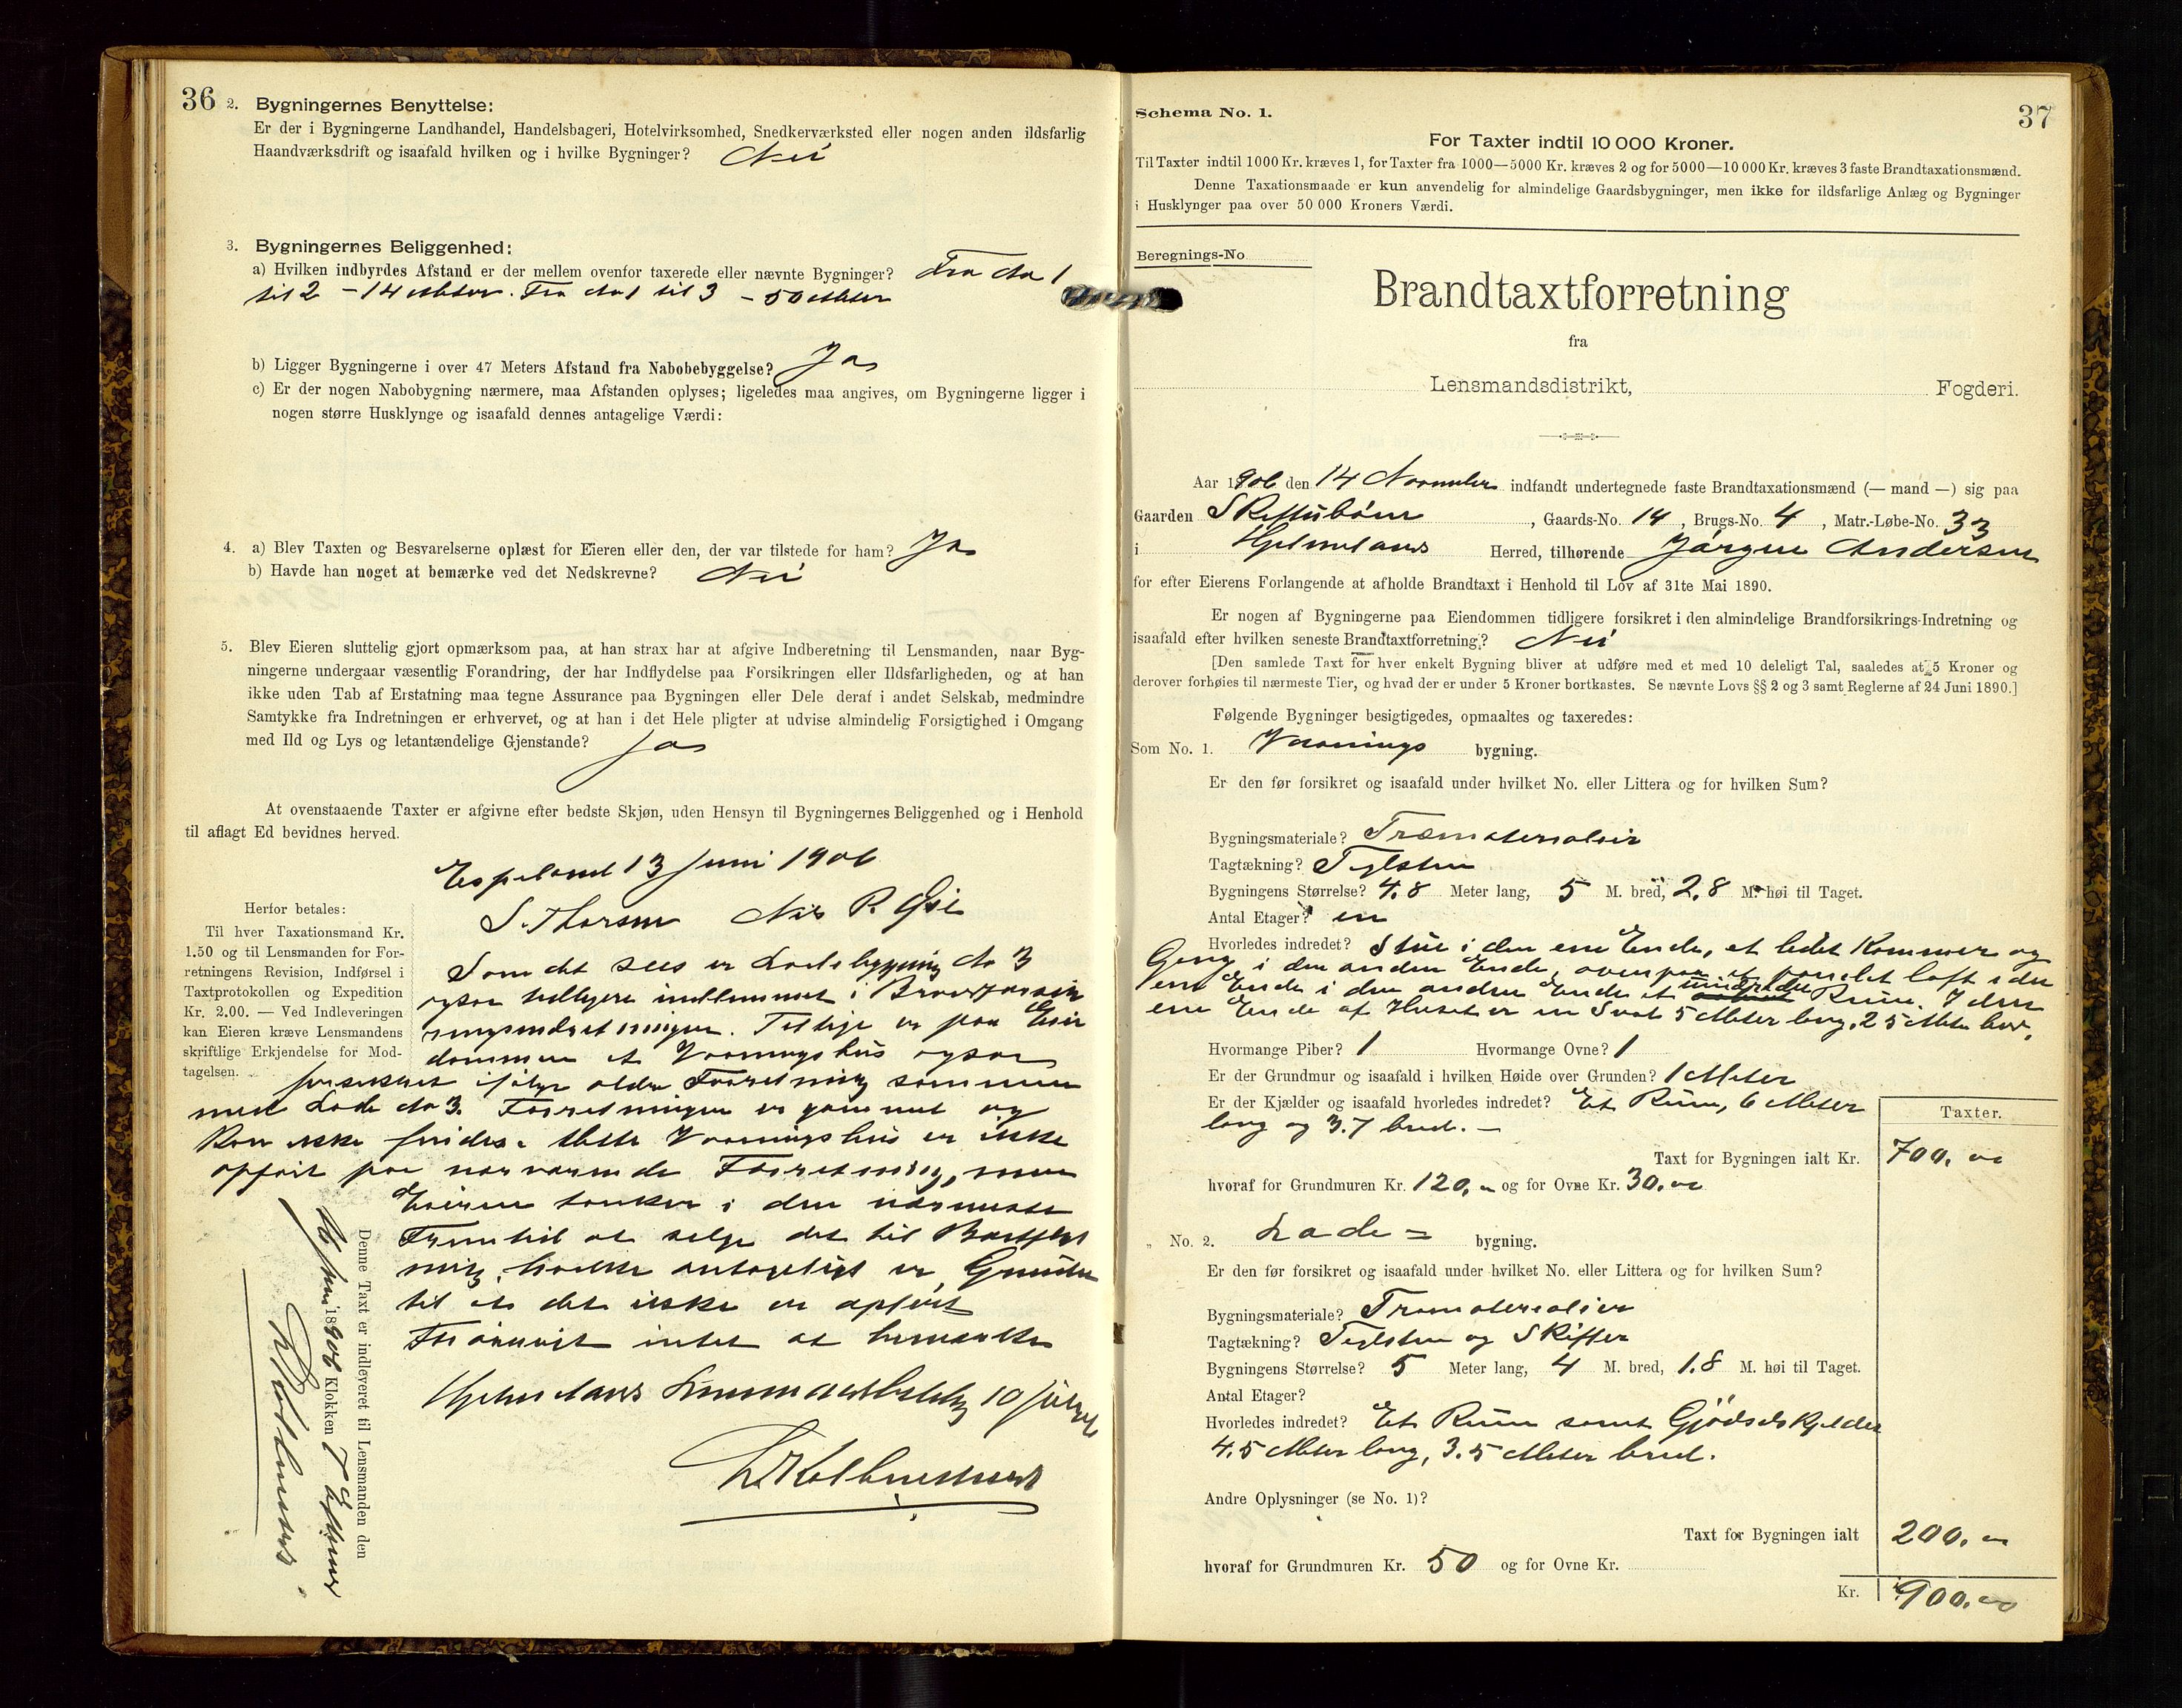 36
2. Bygningernes Benyttelse:
Er der i Bygningerne Landhandel, Handelsbageri, Hotelvirksomhed, Snedkerværksted eller nogen anden ildsfarlig
Haandværksdrift og isaafald hvilken og i hvilke Bygninger? Nei
3. Bygningernes Beliggenhed:
a) Hvilken indbyrdes Afstand er der mellem ovenfor taxerede eller nævnte Bygninger? Fra No 1
til 2 - 14 Meter. Fra No 1 til 3 - 50 Meter
b) Ligger Bygningerne i over 47 Meters Afstand fra Nabobebyggelse? Ja
c) Er der nogen Nabobygning nærmere, maa Afstanden oplyses; ligeledes maa angives, om Bygningerne ligger i
nogen større Husklynge og isaafald dennes antagelige Værdi:
4. a) Blev Taxten og Besvarelserne oplæst for Eieren eller den, der var tilstede for ham? Ja
b) Havde han noget at bemærke ved det Nedskrevne? Nei
5. Blev Eieren sluttelig gjort opmærksom paa, at han strax har at afgive Indberetning til Lensmanden, naar Byg-
ningerne undergaar væsentlig Forandring, der har Indflydelse paa Forsikringen eller Ildsfarligheden, og at han
ikke uden Tab af Erstatning maa tegne Assurance paa Bygningen eller Dele deraf i andet Selskab, medmindre
Samtykke fra Indretningen er erhvervet, og at han i det Hele pligter at udvise almindelig Forsigtighed i Omgang
med Ild og Lys og letantændelige Gjenstande? Ja
At ovenstaaende Taxter er afgivne efter bedste Skjøn, uden Hensyn til Bygningernes Beliggenhed og i Henhold
til aflagt Ed bevidnes herved.
Espeland 13 Juni 1906
S. Thorsen Nils P. Gie
Herfor betales:
Til hver Taxationsmand Kr.
1.50 og til Lensmanden for For-
retningens Revision, Indførsel i
Taxtprotokollen og Expedition
Kr. 2.00. — Ved Indleveringen
kan Eieren kræve Lensmandens
skriftlige Erkjendelse for Mod-
tagelsen.
Som det sees er Ladebygning No 3
ogsaa tidligere indlemmet i Brandforsik
ringsindretningen. Tillige er paa Eien
dommen et Vaaningshus ogsaa
forsikret ifølge ældre Forretning sammen
med Lade No 3. Forretningen er gammel og
kan ikke findes. Dette Vaaningshus er ikke
opført paa nærværende Forretning, men
Eieren tænker i den nærmeste
Fremtid at selge det til Bortflyt
ning, hvilket antageligt er Grunden
til at det ikke er opført
Forøvrigt intet at bemærke
Hjelmelands Lensmandsbestilling 10 Juli
Denne Taxt er indleveret til Lensmanden den
1906 Klokken 7 Efterm
37
Schema No. 1.
For Taxter indtil 10 000 Kroner.
Til Taxter indtil 1000 Kr. kræves 1, for Taxter fra 1000—5000 Kr. kræves 2 og for 5000—10 000 Kr. kræves 3 faste Brandtaxationsmænd.
Denne Taxationsmaade er kun anvendelig for almindelige Gaardsbygninger, men ikke for ildsfarlige Anlæg og Bygninger
i Husklynger paa over 50 000 Kroners Værdi.
Beregnings-No
Brandtaxtforretning
fra
Lensmandsdistrikt, Fogderi.
Aar 1906 den 14 November indfandt undertegnede faste Brandtaxationsmænd (— mand —) sig paa
Gaarden Skiftubøen, Gaards-No. 14, Brugs-No. 4, Matr.-Løbe-No. 33
i Hjelmelands Herred, tilhørende Jørgen Andersen
for efter Eierens Forlangende at afholde Brandtaxt i Henhold til Lov af 31te Mai 1890.
Er nogen af Bygningerne paa Eiendommen tidligere forsikret i den almindelige Brandforsikrings-Indretning og
isaafald efter hvilken seneste Brandtaxtforretning? Nei
[Den samlede Taxt for hver enkelt Bygning bliver at udføre med et med 10 deleligt Tal, saaledes at 5 Kroner og
derover forhøies til nærmeste Tier, og hvad der er under 5 Kroner bortkastes. Se nævnte Lovs §§ 2 og 3 samt Reglerne af 24 Juni 1890.]
Følgende Bygninger besigtigedes, opmaaltes og taxeredes:
Som No. 1. Vaanings bygning.
Er den før forsikret og isaafald under hvilket No. eller Littera og for hvilken Sum?
Bygningsmateriale? Træmaterialier
Tagtækning? Teglsten
Bygningens Størrelse? 4.8 Meter lang, 5 M. bred, 2.8 M. høi til Taget.
Antal Etager? en
Hvorledes indredet? Stue i den ene Ende, et lidet Kammer og
Gang i den anden Ende, ovenpaa et panelet loft i den
ene Ende i den anden Ende et uindredet Rum. I den
ene Ende af Huset er en Sval 5 Meter lang, 2 5 Meter bred,
Hvormange Piber? 1 Hvormange Ovne? 1
Er der Grundmur og isaafald i hvilken Høide over Grunden? 1 Meter
Er der Kjælder og isaafald hvorledes indredet? Et Rum, 6 Meter
lang og 3.7 bred. —
Taxter.
Taxt for Bygningen ialt Kr. 700.00
hvoraf for Grundmuren Kr. 120.00 og for Ovne Kr. 30.00
„ No. 2. Lade= bygning.
Er den før forsikret og isaafald under hvilket No. eller Littera og for hvilken Sum?
Bygningsmateriale? Træmaterialier
Tagtækning? Teglsten og Skiffer
Bygningens Størrelse? 5 Meter lang, 4 M. bred, 1.8 M. høi til Taget.
Antal Etager?
Hvorledes indredet? Et Rum samt Gjødselskjelder
4.5 Meter lang, 3.5 Meter bred.
Andre Oplysninger (se No. 1)?
Taxt for Bygningen ialt 200.00
hvoraf for Grundmuren Kr. 50 og for Ovne Kr.
Kr. 900.00